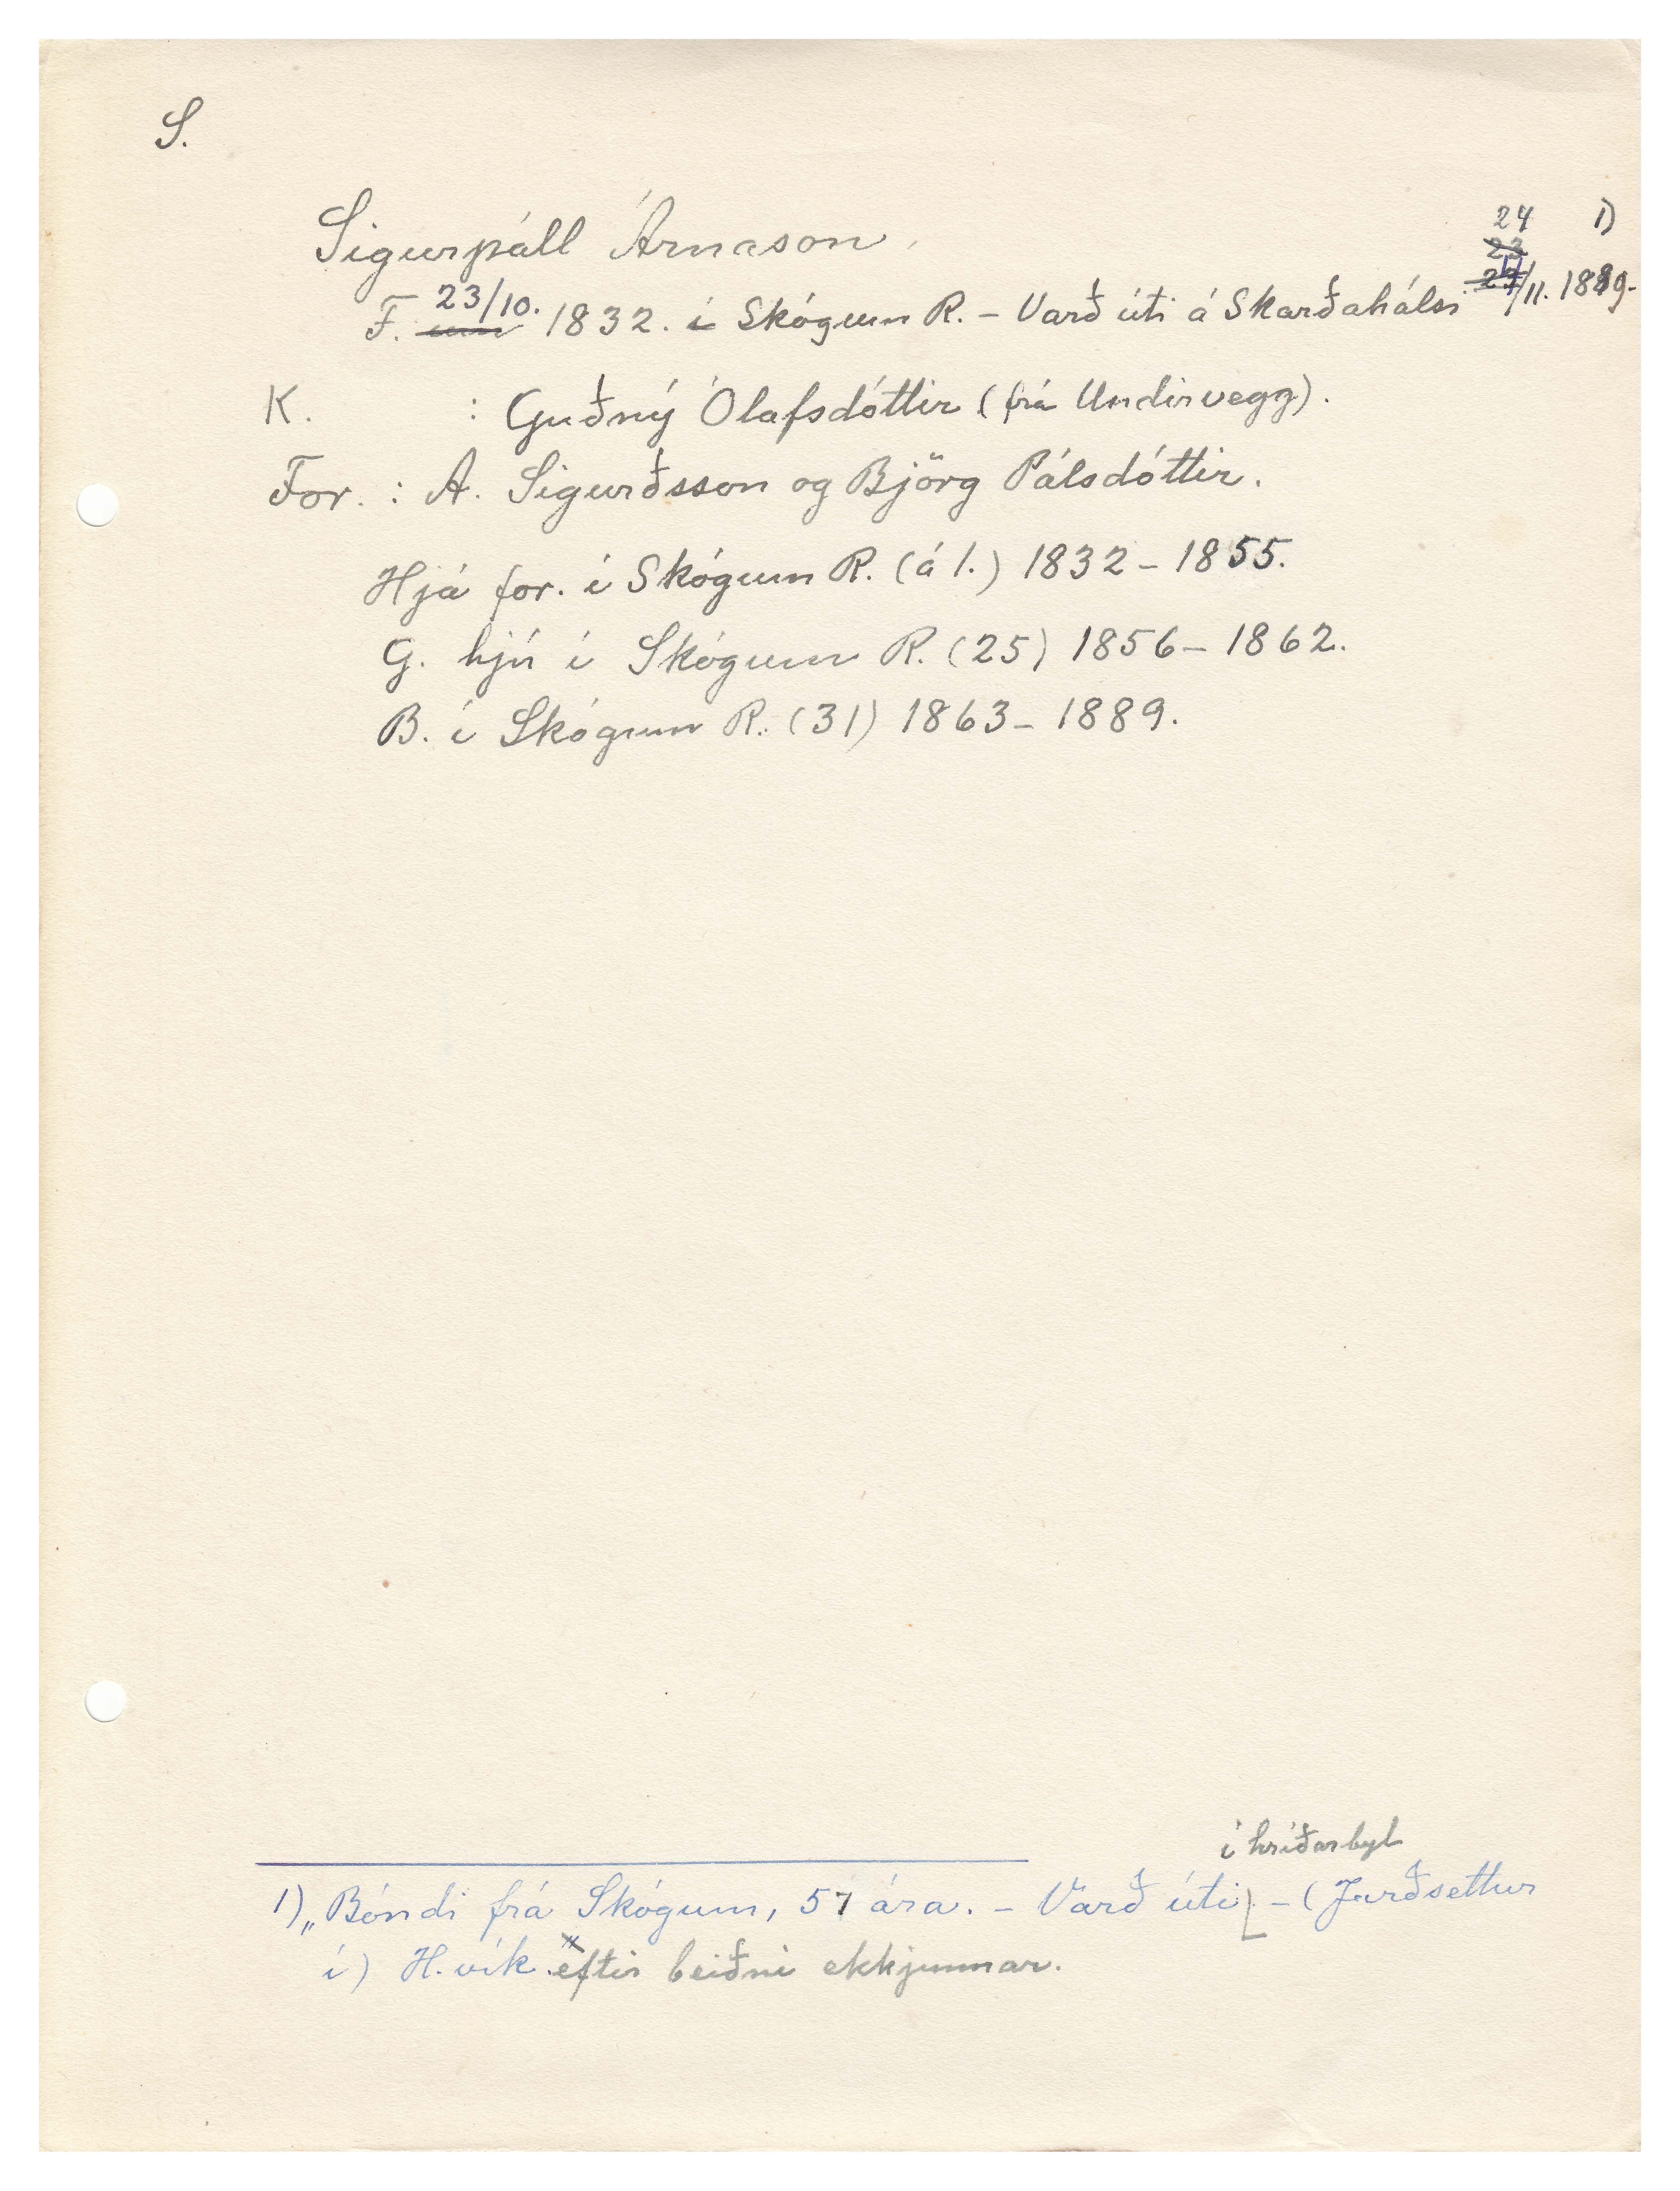 S.
Sigurpáll Árnason.
F. 23/10. 1832. í Skógum R. – Varð úti á Skarðahálsi 24/11. 1889. 1)
K. : Guðný Ólafsdóttir (frá Undirvegg).
For. : Á. Sigurðsson og Björg Pálsdóttir.
Hjá for. í Skógum R. (á 1.) 1832 – 1855.
G. hjú í Skógum R. (25) 1856 – 1862.
B. í Skógum R. (31) 1863 – 1889.
í hríðarbyl
1) „Bóndi frá Skógum, 57 ára. – Varð úti. – (Jarðsettur
í) H.vík. eftir beiðni ekkjunnar.